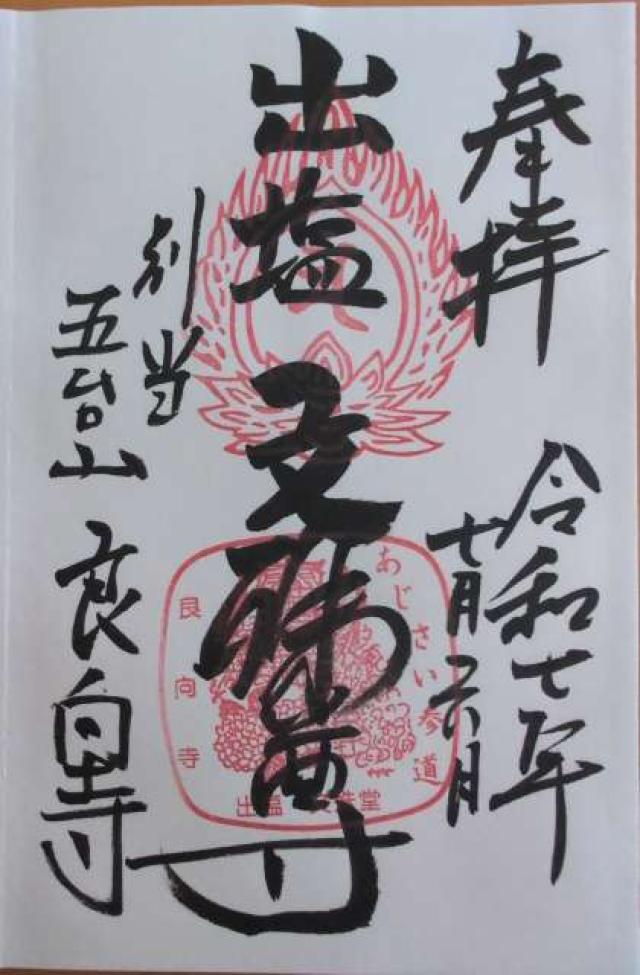 奉拝
令和七年
七月二六日
出塩文殊尊
別当
五台山良向寺
あじさい参道
良向寺
出塩文殊堂